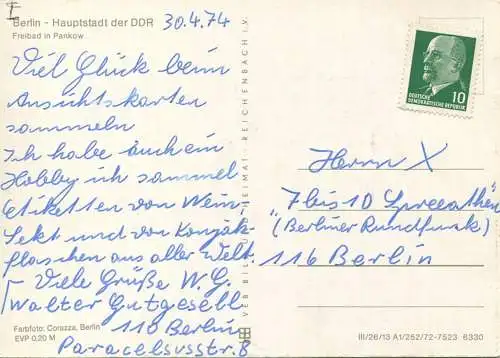 I
Berlin - Hauptstadt der DDR
Freibad in Pankow
30.4.74
Viel Glück beim
Ansichtskarten
sammeln
Ich habe auch ein
Hobby ich sammel
Etiketten von Wein
Sekt und von Konjak-
flaschen aus aller Welt.
Viele Grüße W. G.
Walter Gutgesell
110 Berlin
Paracelsusstr. 8
Farbfoto: Corazza, Berlin
EVP 0,20 M
VEB BILD HEIMAT REICHENBACH i. V.
DEUTSCHE
DEMOKRATISCHE REPUBLIK
10
Herrn X
"7 bis 10 Spreeathen
(Berliner Rundfunk)
116 Berlin
III/26/13 A1/252/72-7523 6330